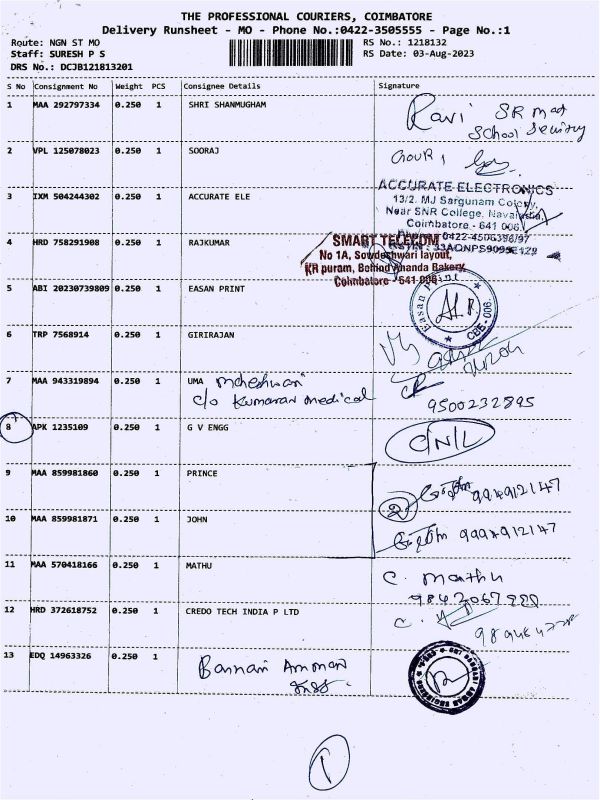 THE PROFESSIONAL COURIERS, COIMBATORE
Delivery Runsheet - MO - Phone No.:0422-3505555 - Page No.:1
Route: NGN ST MO
RS No.: 1218132
Staff: SURESH P S
RS Date: 03-Aug-2023
DRS No.: DCJB121813201
S No Consignment No Weight PCS Consignee Details Signature
1 MAA 292797334 0.250 1 SHRI SHANMUGHAM
Ravi SR mat
School
2 VPL 125078023 0.250 1 SOORAJ
GOURI
3 IXM 504244302 0.250 1 ACCURATE ELE
ACCURATE ELECTRONICS
13/2. MJ Sargunam Colony,
Near SNR College,
Coimbatore - 641 006.
0422-4506396/97
4 HRD 758291908 0.250 1 RAJKUMAR
SMART TELECOM
No 1A, Sowdeshwari layout,
KR puram, Behind Ananda Bakery,
Coimbatore - 641 006
5 ABI 20230739809 0.250 1 EASAN PRINT
Easan Print
CBE-006.
6 TRP 7568914 0.250 1 GIRIRAJAN
7 MAA 943319894 0.250 1 UMA Maheshwari
c/o Kumaran medical
9500232895
8 APK 1235109 0.250 1 G V ENGG
C/N/L
9 MAA 859981860 0.250 1 PRINCE
2
10 MAA 859981871 0.250 1 JOHN
11 MAA 570418166 0.250 1 MATHU
C. Marthu
12 HRD 372618752 0.250 1 CREDO TECH INDIA P LTD
13 EDQ 14963326 0.250 1 Bannari Amman
1